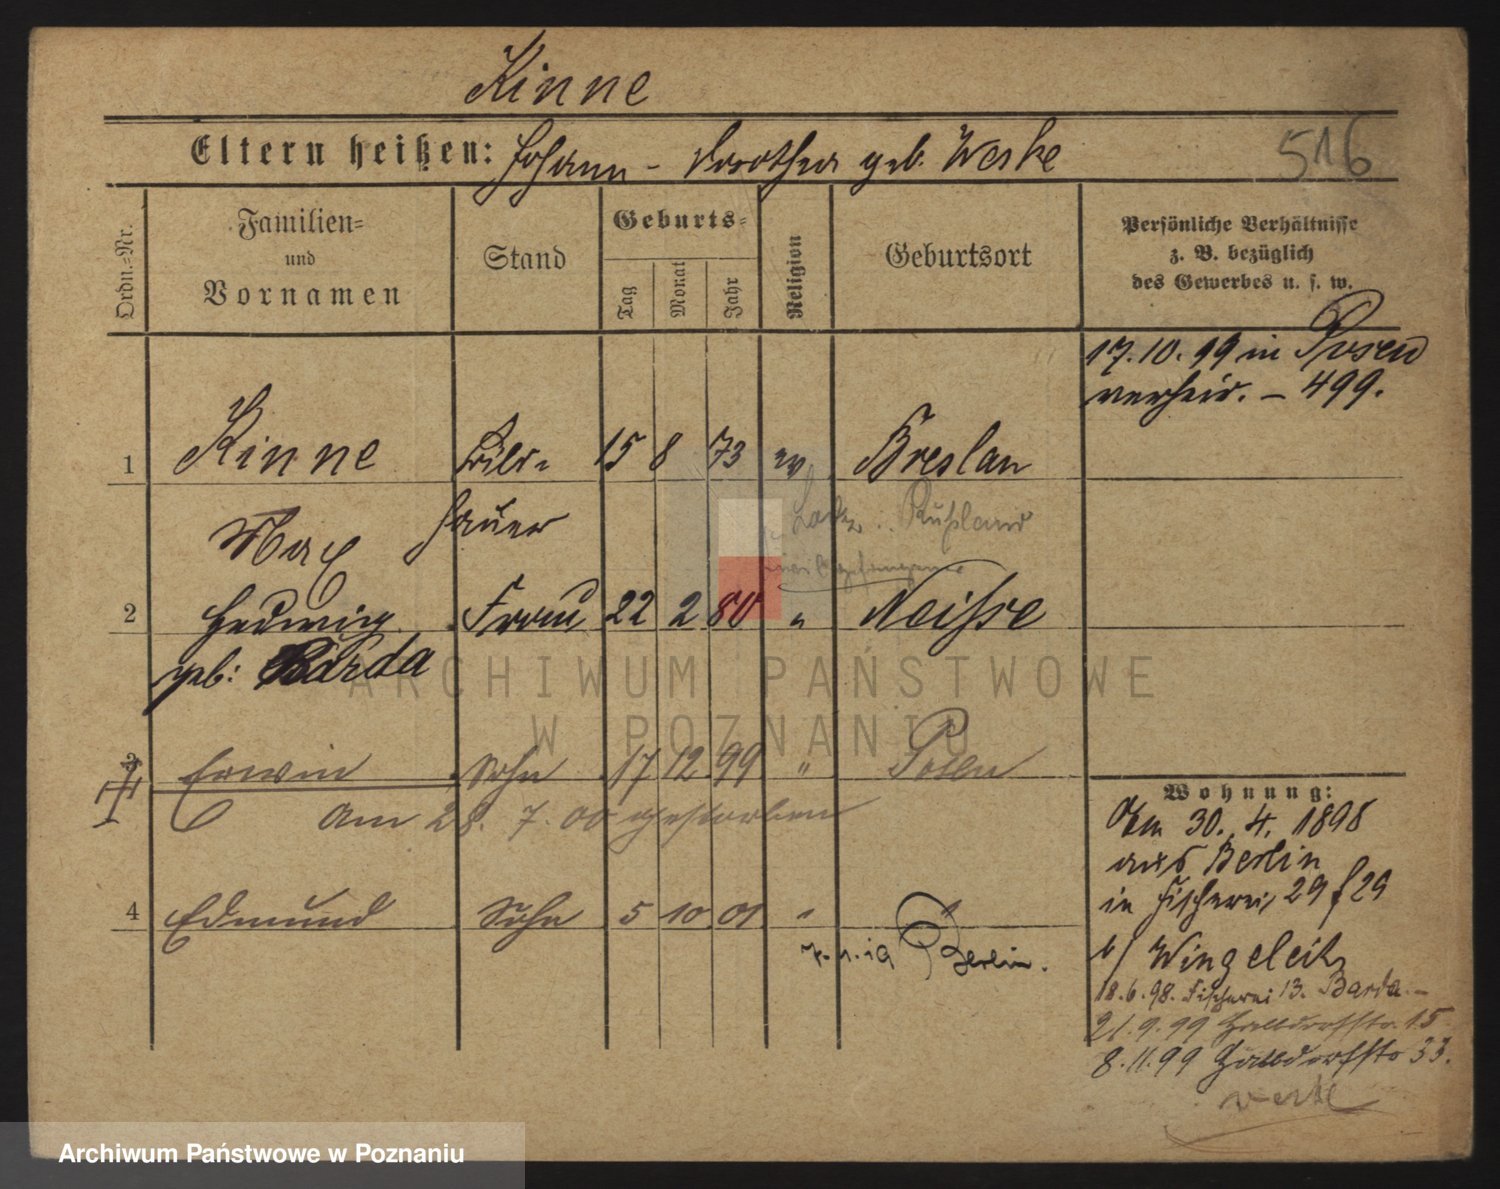 Kinne
Eltern heißen: Johann - Dorothea geb. Werke
516
Ordn.=Nr.
Familien=
und
Vornamen
Stand
Geburts=
Tag
Monat
Jahr
Religion
Geburtsort
Persönliche Verhältnisse
z. B. bezüglich
des Gewerbes u. s. w.
17.10.99 in Posen
verheir. - 499.
1 Kinne Bild= 15 8 73 ev Breslau
Max hauer
Rußland
2 Hedwig Frau 22 2 80 " Neisse
geb: Barda
ARCHIWUM PAŃSTWOWE
W POZNANIU
3 Erwin Sohn 17 12 99 " Posen
am 28. 7. 00 gestorben
Wohnung:
Am 30. 4. 1898
aus Berlin
in Fischerei 29
4 Edmund Sohn 5 10 01 "
7.1.19 Berlin.
b/ Wingeleit
18.6.98. Fischerei 13. Barda. -
21.9.99 Halbdorfstr. 15
8.11.99 Halbdorfstr 33.
Archiwum Państwowe w Poznaniu